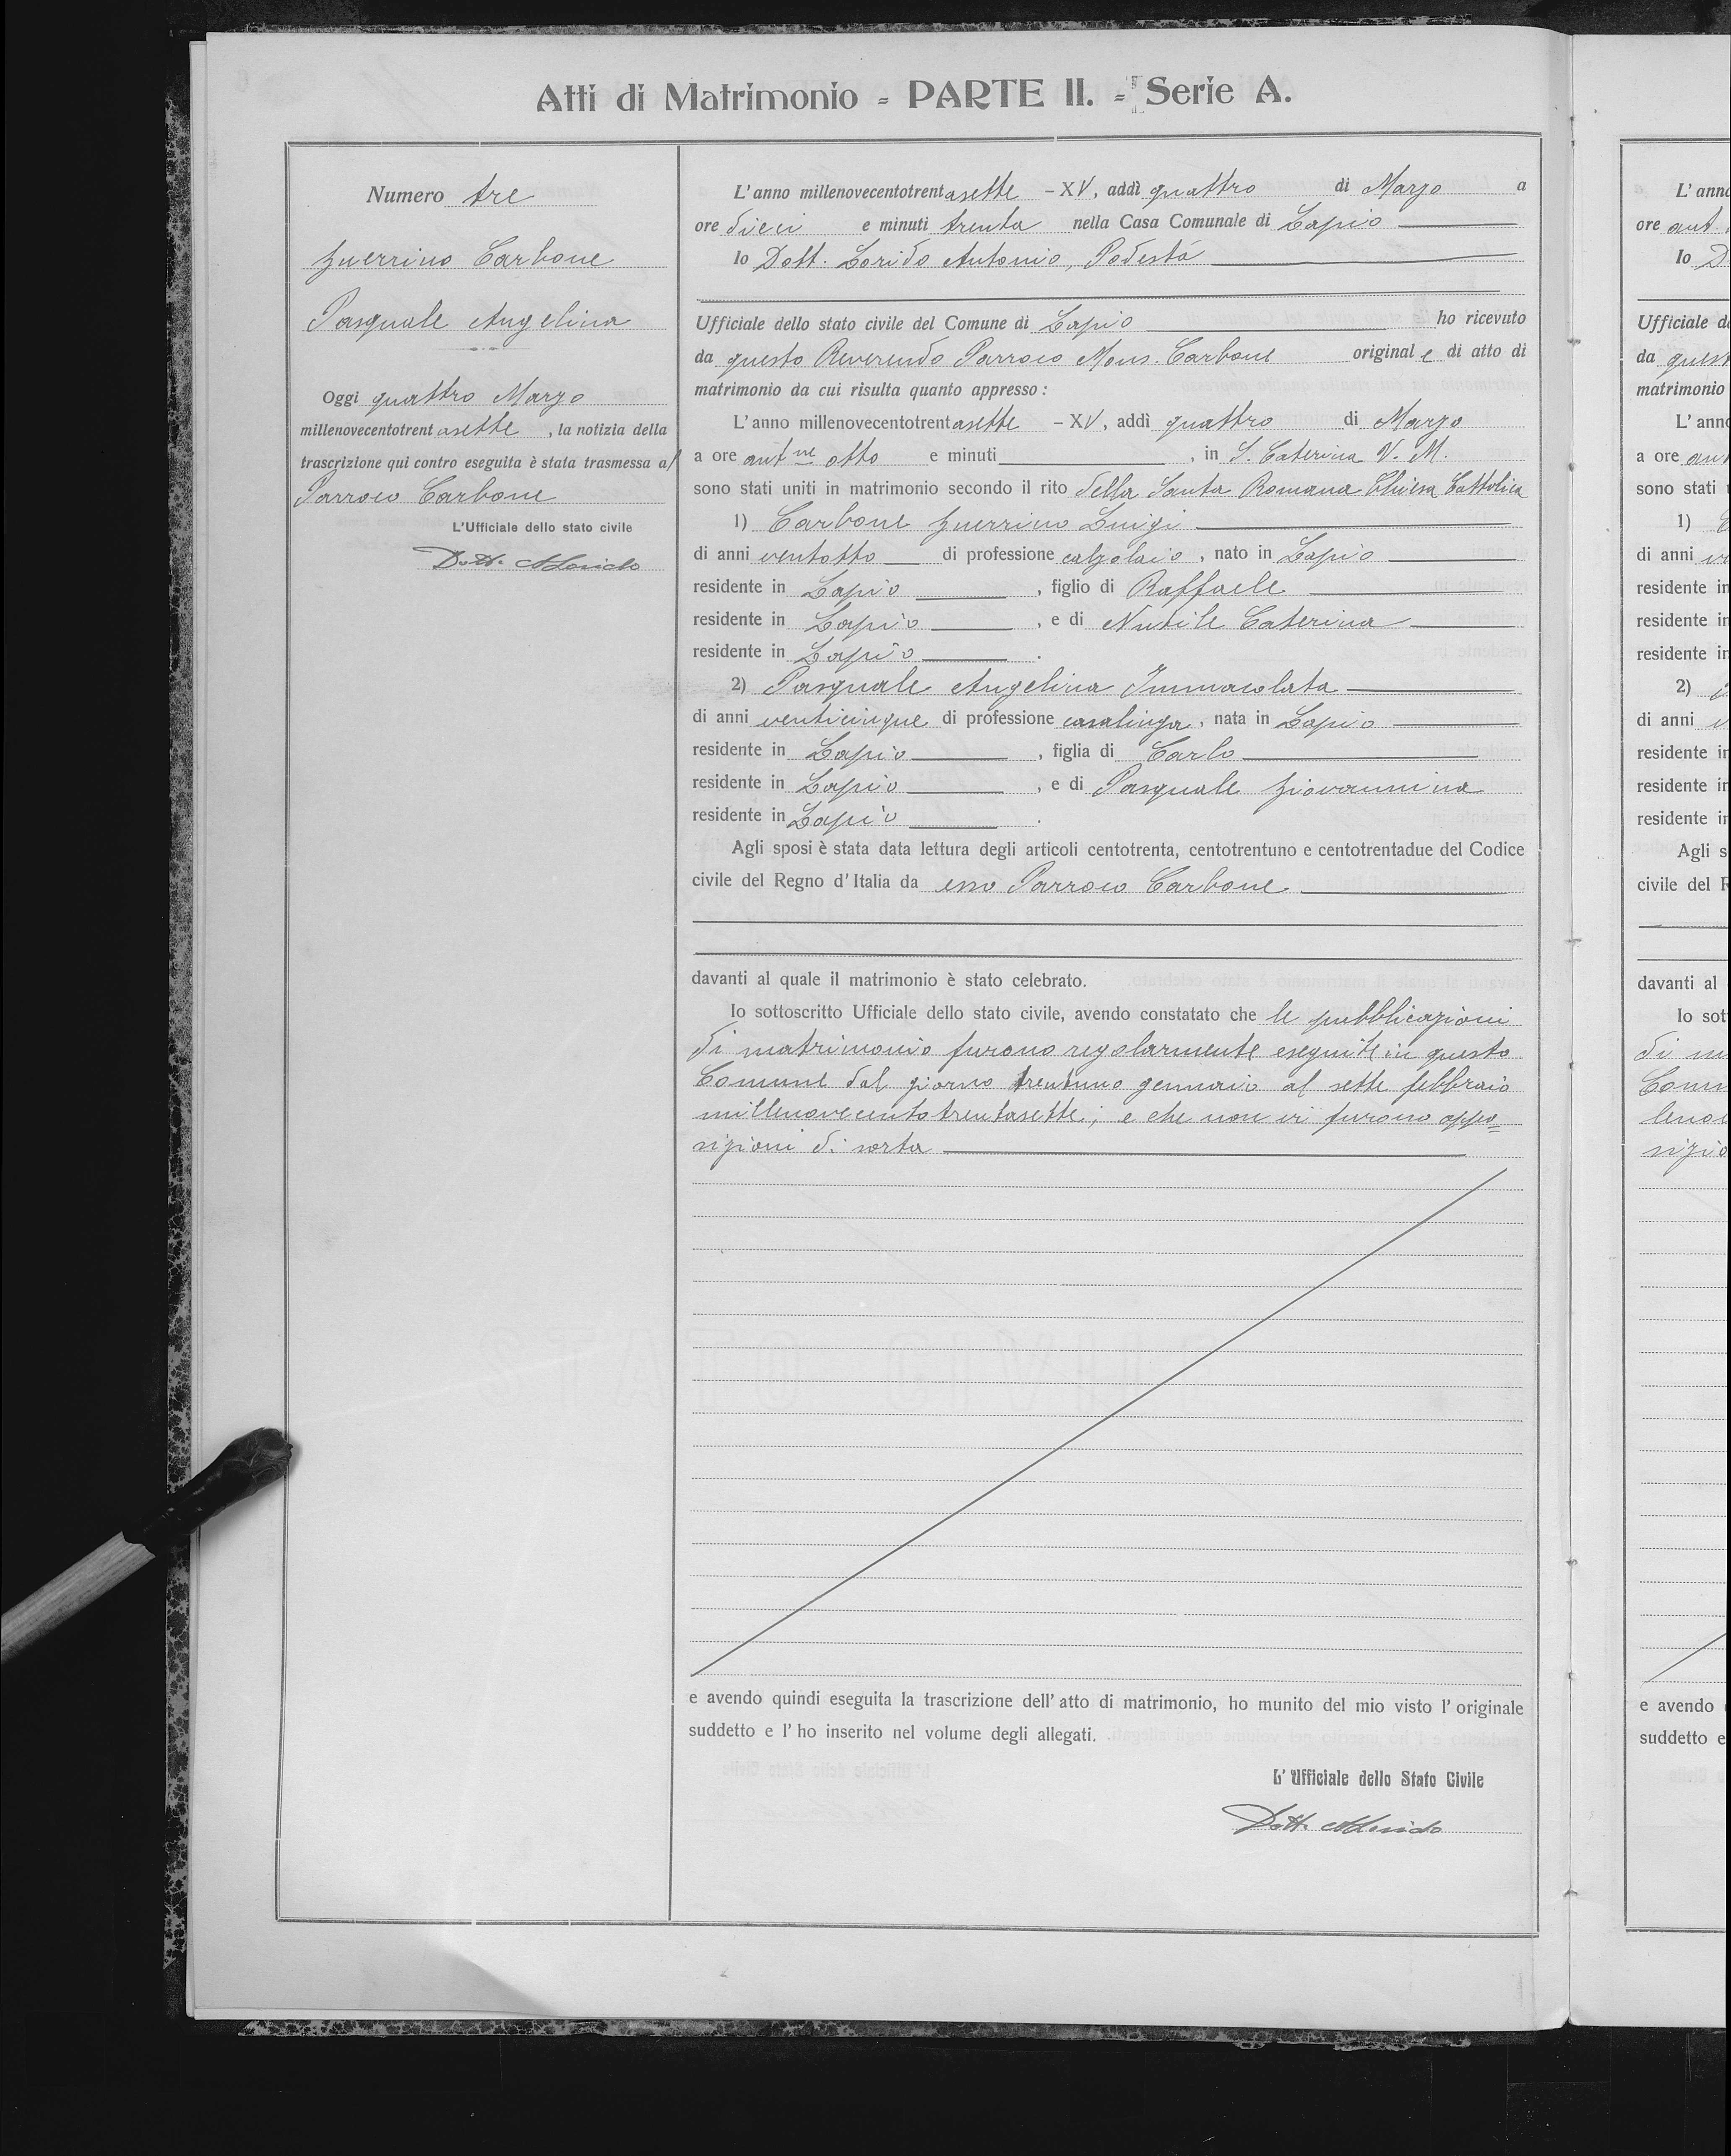 Atti di Matrimonio - PARTE II. - Serie A.
Numero tre
Guerrino Carbone
Pasquale Angelina
Oggi quattro Marzo
millenovecentotrentasette, la notizia della
trascrizione qui contro eseguita è stata trasmessa al
Parroco Carbone
L'Ufficiale dello stato civile
Dott. ALorido
L'anno millenovecentotrentasette - XV, addì quattro di Marzo a
ore dieci e minuti trenta nella Casa Comunale di Lapio
Io Dott. Lorido Antonio, Podestà
Ufficiale dello stato civile del Comune di Lapio ho ricevuto
da questo Reverendo Parroco Mons. Carbone originale di atto di
matrimonio da cui risulta quanto appresso:
L'anno millenovecentotrentasette - XV, addì quattro di Marzo
a ore antne otto e minuti , in S. Caterina V. M.
sono stati uniti in matrimonio secondo il rito della Santa Romana Chiesa Cattolica
1) Carbone Guerrino Luigi
di anni ventotto di professione calzolaio, nato in Lapio
residente in Lapio, figlio di Raffaele
residente in Lapio, e di Nutile Caterina
residente in Lapio.
2) Pasquale Angelina Immacolata
di anni venticinque di professione casalinga, nata in Lapio
residente in Lapio, figlia di Carlo
residente in Lapio, e di Pasquale Giovannina
residente in Lapio.
Agli sposi è stata data lettura degli articoli centotrenta, centotrentuno e centotrentadue del Codice
civile del Regno d'Italia da esso Parroco Carbone.
davanti al quale il matrimonio è stato celebrato.
Io sottoscritto Ufficiale dello stato civile, avendo constatato che le pubblicazioni
di matrimonio furono regolarmente eseguite in questo
Comune dal giorno trentuno gennaio al sette febbraio
millenovecentotrentasette; e che non vi furono oppo=
sizioni di sorta
e avendo quindi eseguita la trascrizione dell'atto di matrimonio, ho munito del mio visto l'originale
suddetto e l'ho inserito nel volume degli allegati.
L'Ufficiale dello Stato Civile
Dott. ALorido
L'anno
ore ant.
Io D
Ufficiale d
da quest
matrimonio
L'anno
a ore an
sono stati
1)
di anni
residente in
residente in
residente in
2)
di anni
residente in
residente in
residente in
Agli s
civile del R
davanti al
Io sot
di m
Comu
lenov
sizio
e avendo
suddetto e